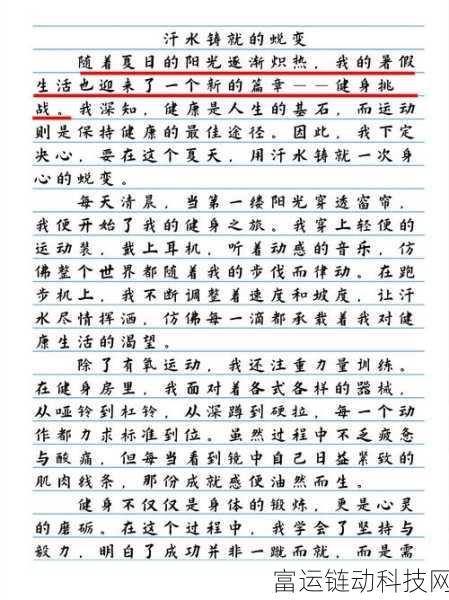 汗水铸就的蜕变
随着夏日的阳光逐渐炽热，我的暑假
生活也迎来了一个新的篇章——健身挑
战。我深知，健康是人生的基石，而运动
则是保持健康的最佳途径。因此，我下定
决心，要在这个夏天，用汗水铸就一次身
心的蜕变。
每天清晨，当第一缕阳光穿透窗帘，
我便开始了我的健身之旅。我穿上轻便的
运动装，戴上耳机，听着动感的音乐，仿
佛整个世界都随着我的步伐而律动。在跑
步机上，我不断调整着速度和坡度，让汗
水尽情挥洒，仿佛每一滴都承载着我对健
康生活的渴望。
除了有氧运动，我还注重力量训练。
在健身房里，我面对着各式各样的器械，
从哑铃到杠铃，从深蹲到硬拉，每一个动
作都力求标准到位。虽然过程中不乏疲惫
与酸痛，但每当看到镜中自己日益紧致的
肌肉线条，那份成就感便油然而生。
健身不仅仅是身体的锻炼，更是心灵
的磨砺。在这个过程中，我学会了坚持与
毅力，明白了成功并非一蹴而就，而是需
富运链动科技网